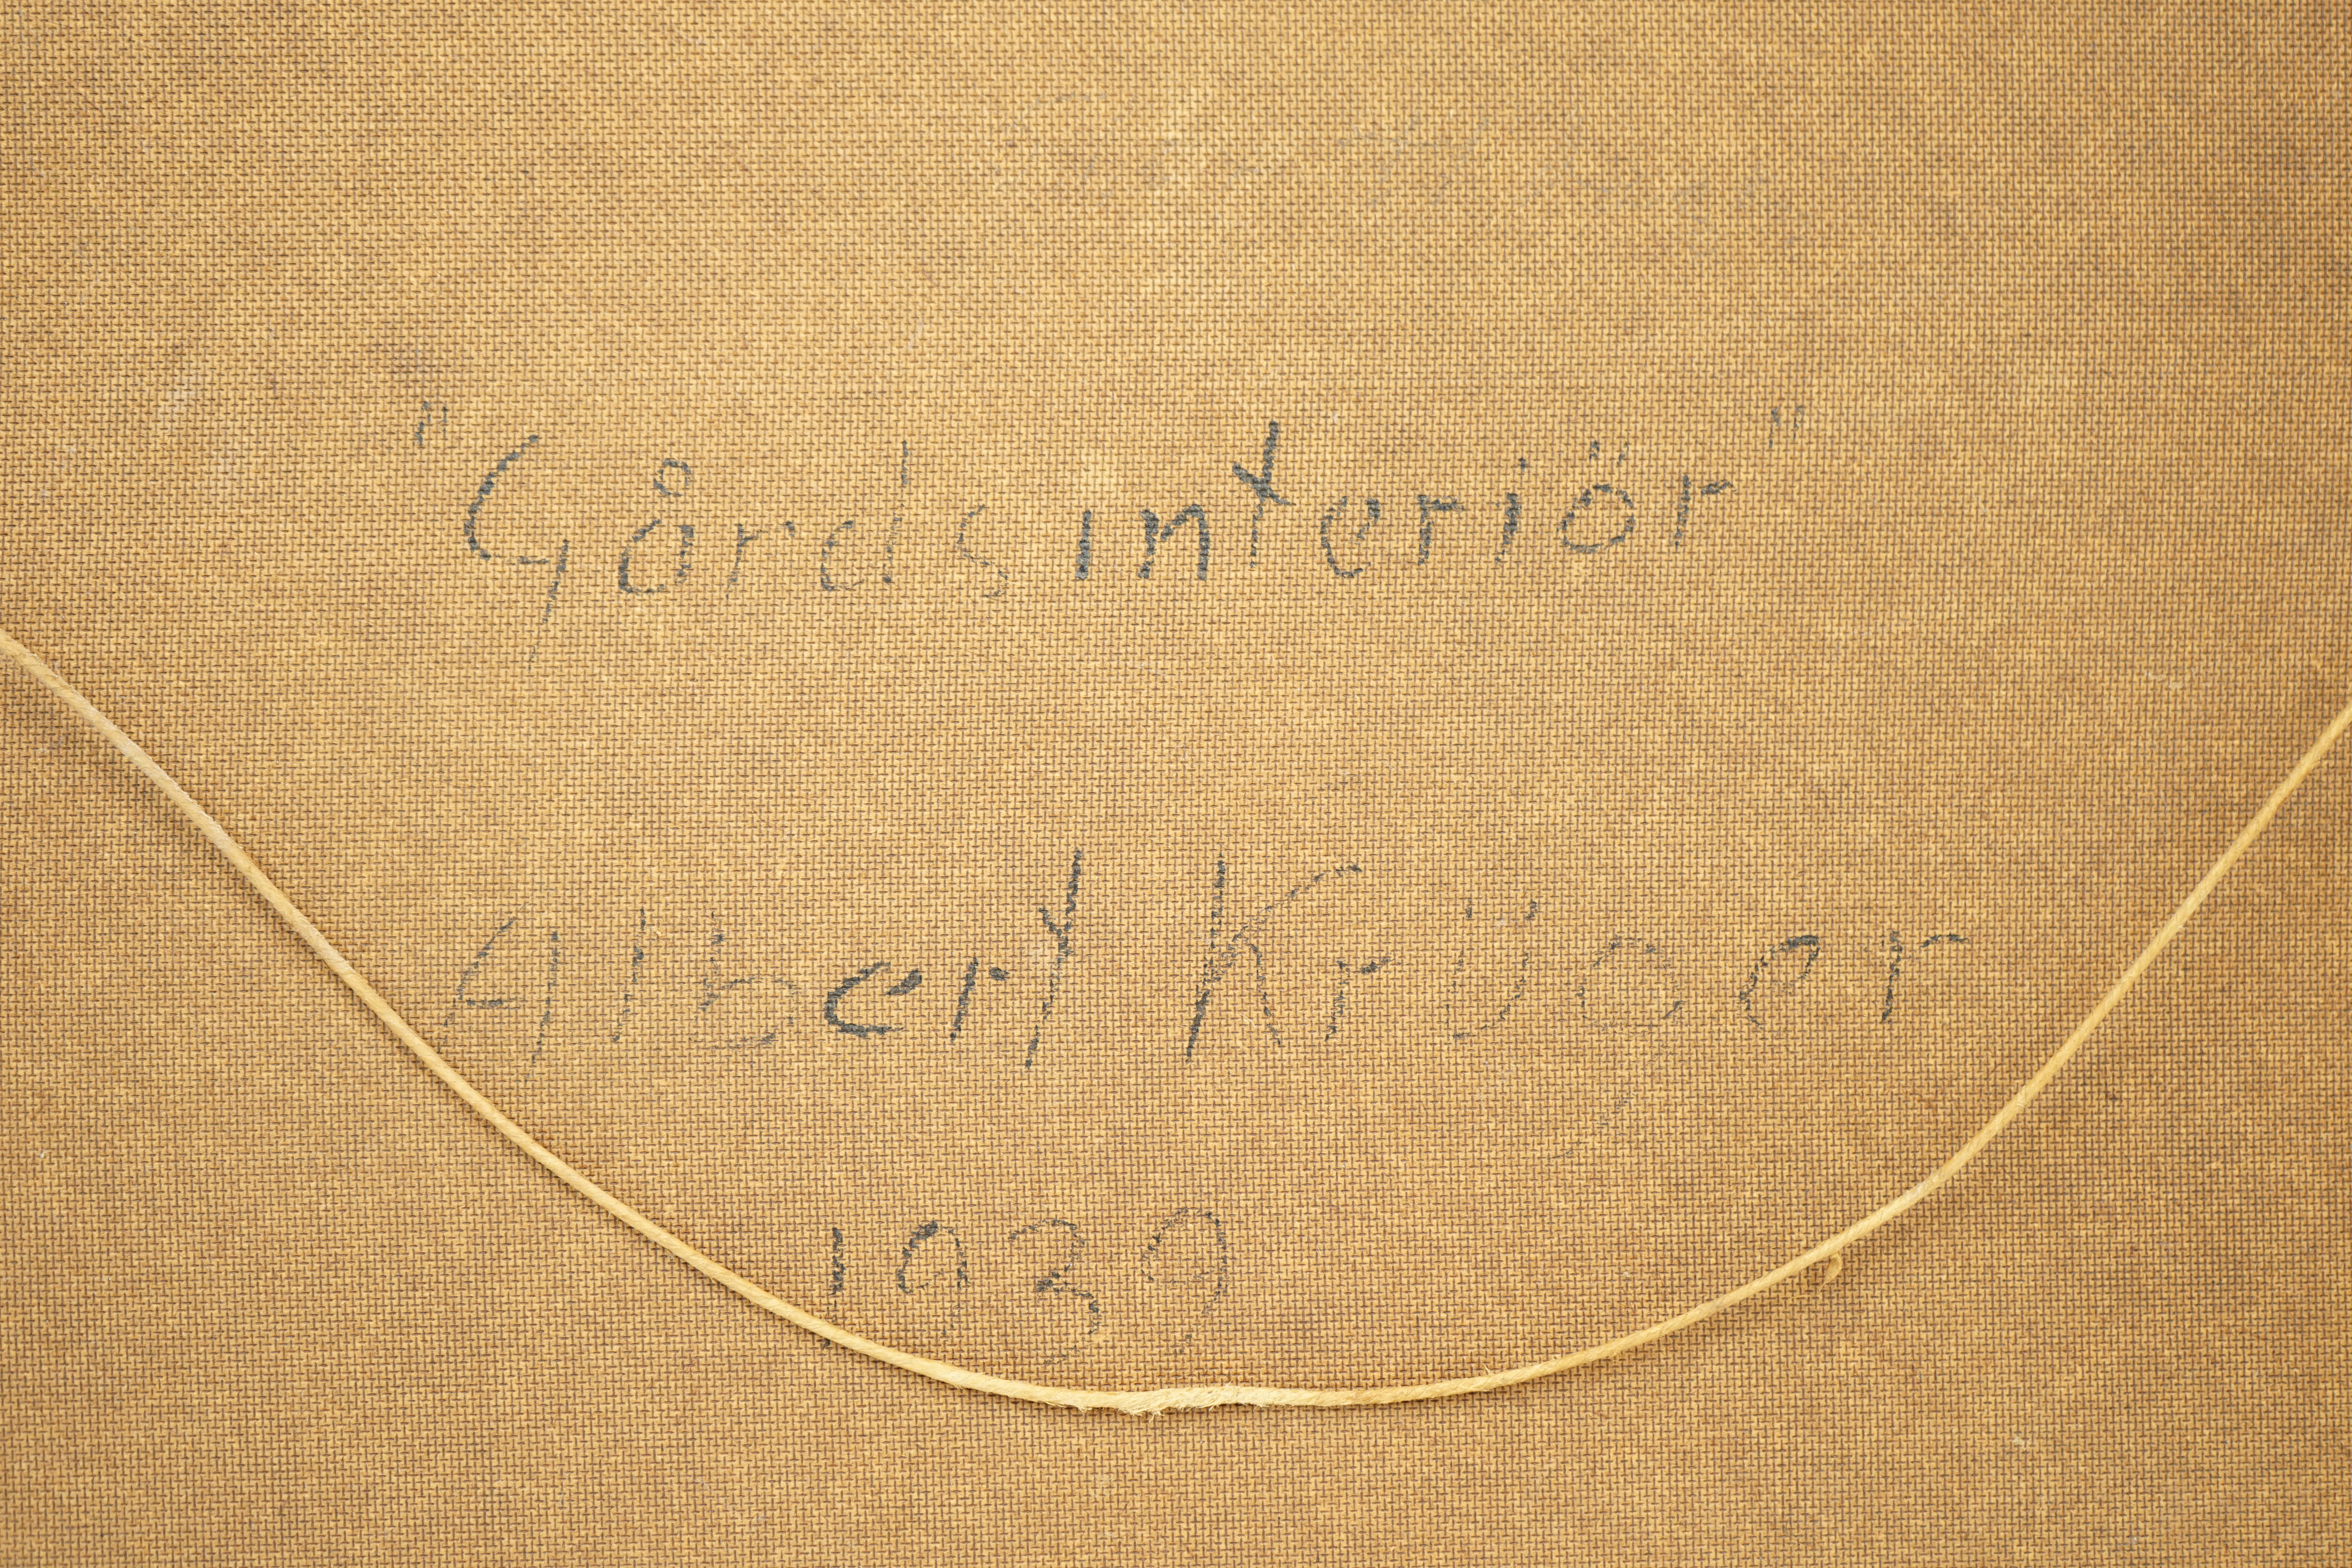 "Gårdsinteriör"
Albert Krüger
1939